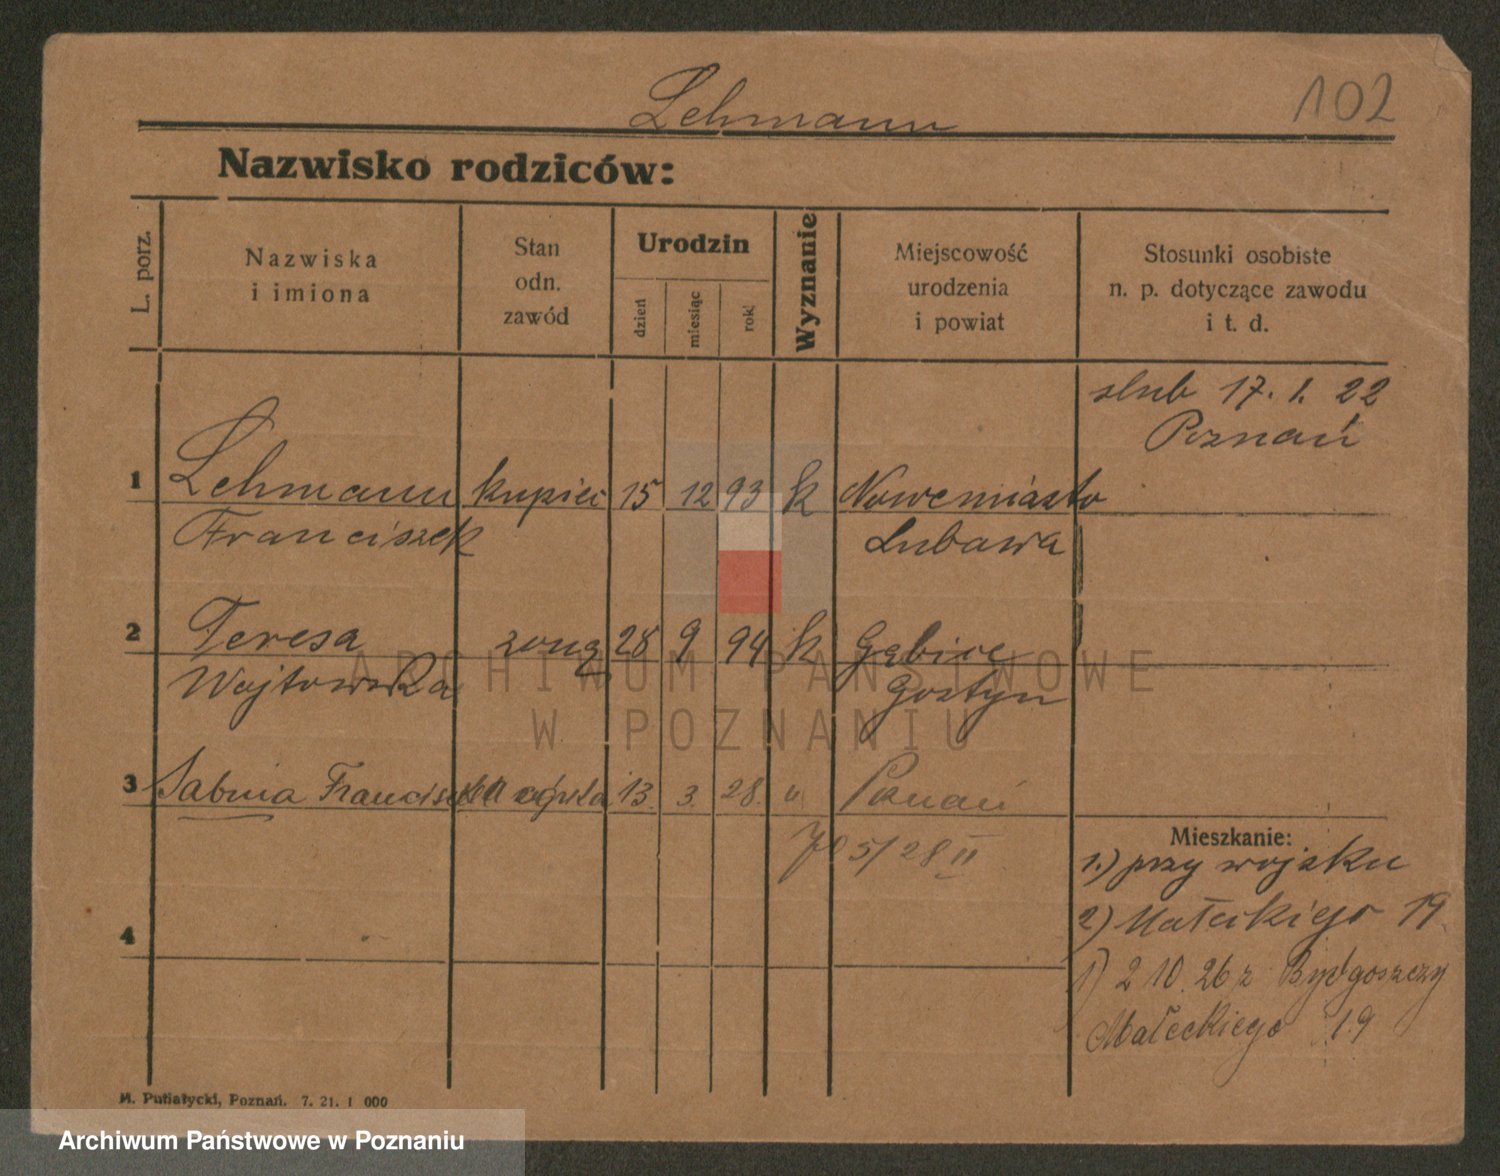 Lehmann
102
Nazwisko rodziców:
L. porz.
Nazwiska
i imiona
Stan
odn.
zawód
Urodzin
dzień
miesiąc
rok
Wyznanie
Miejscowość
urodzenia
i powiat
Stosunki osobiste
n. p. dotyczące zawodu
i t. d.
slub 17. 1. 22
Poznań
1 Lehmann kupiec 15 12 93 k Nowemiasto
Franciszek Lubawa
2 Teresa żona 28 9 94 k Gębice
Wojtowska Gostyn
3 Sabina córka 13. 3. 28. " Poznań
5/28 II
Mieszkanie:
1.) przy wojsku
2) Małeckiego 19
1) 2 10. 26 z Bydgoszczy
Małeckiego 19
4
M. Putiatycki, Poznań. 7. 21. 1 000
ARCHIWUM PAŃSTWOWE
W POZNANIU
Archiwum Państwowe w Poznaniu